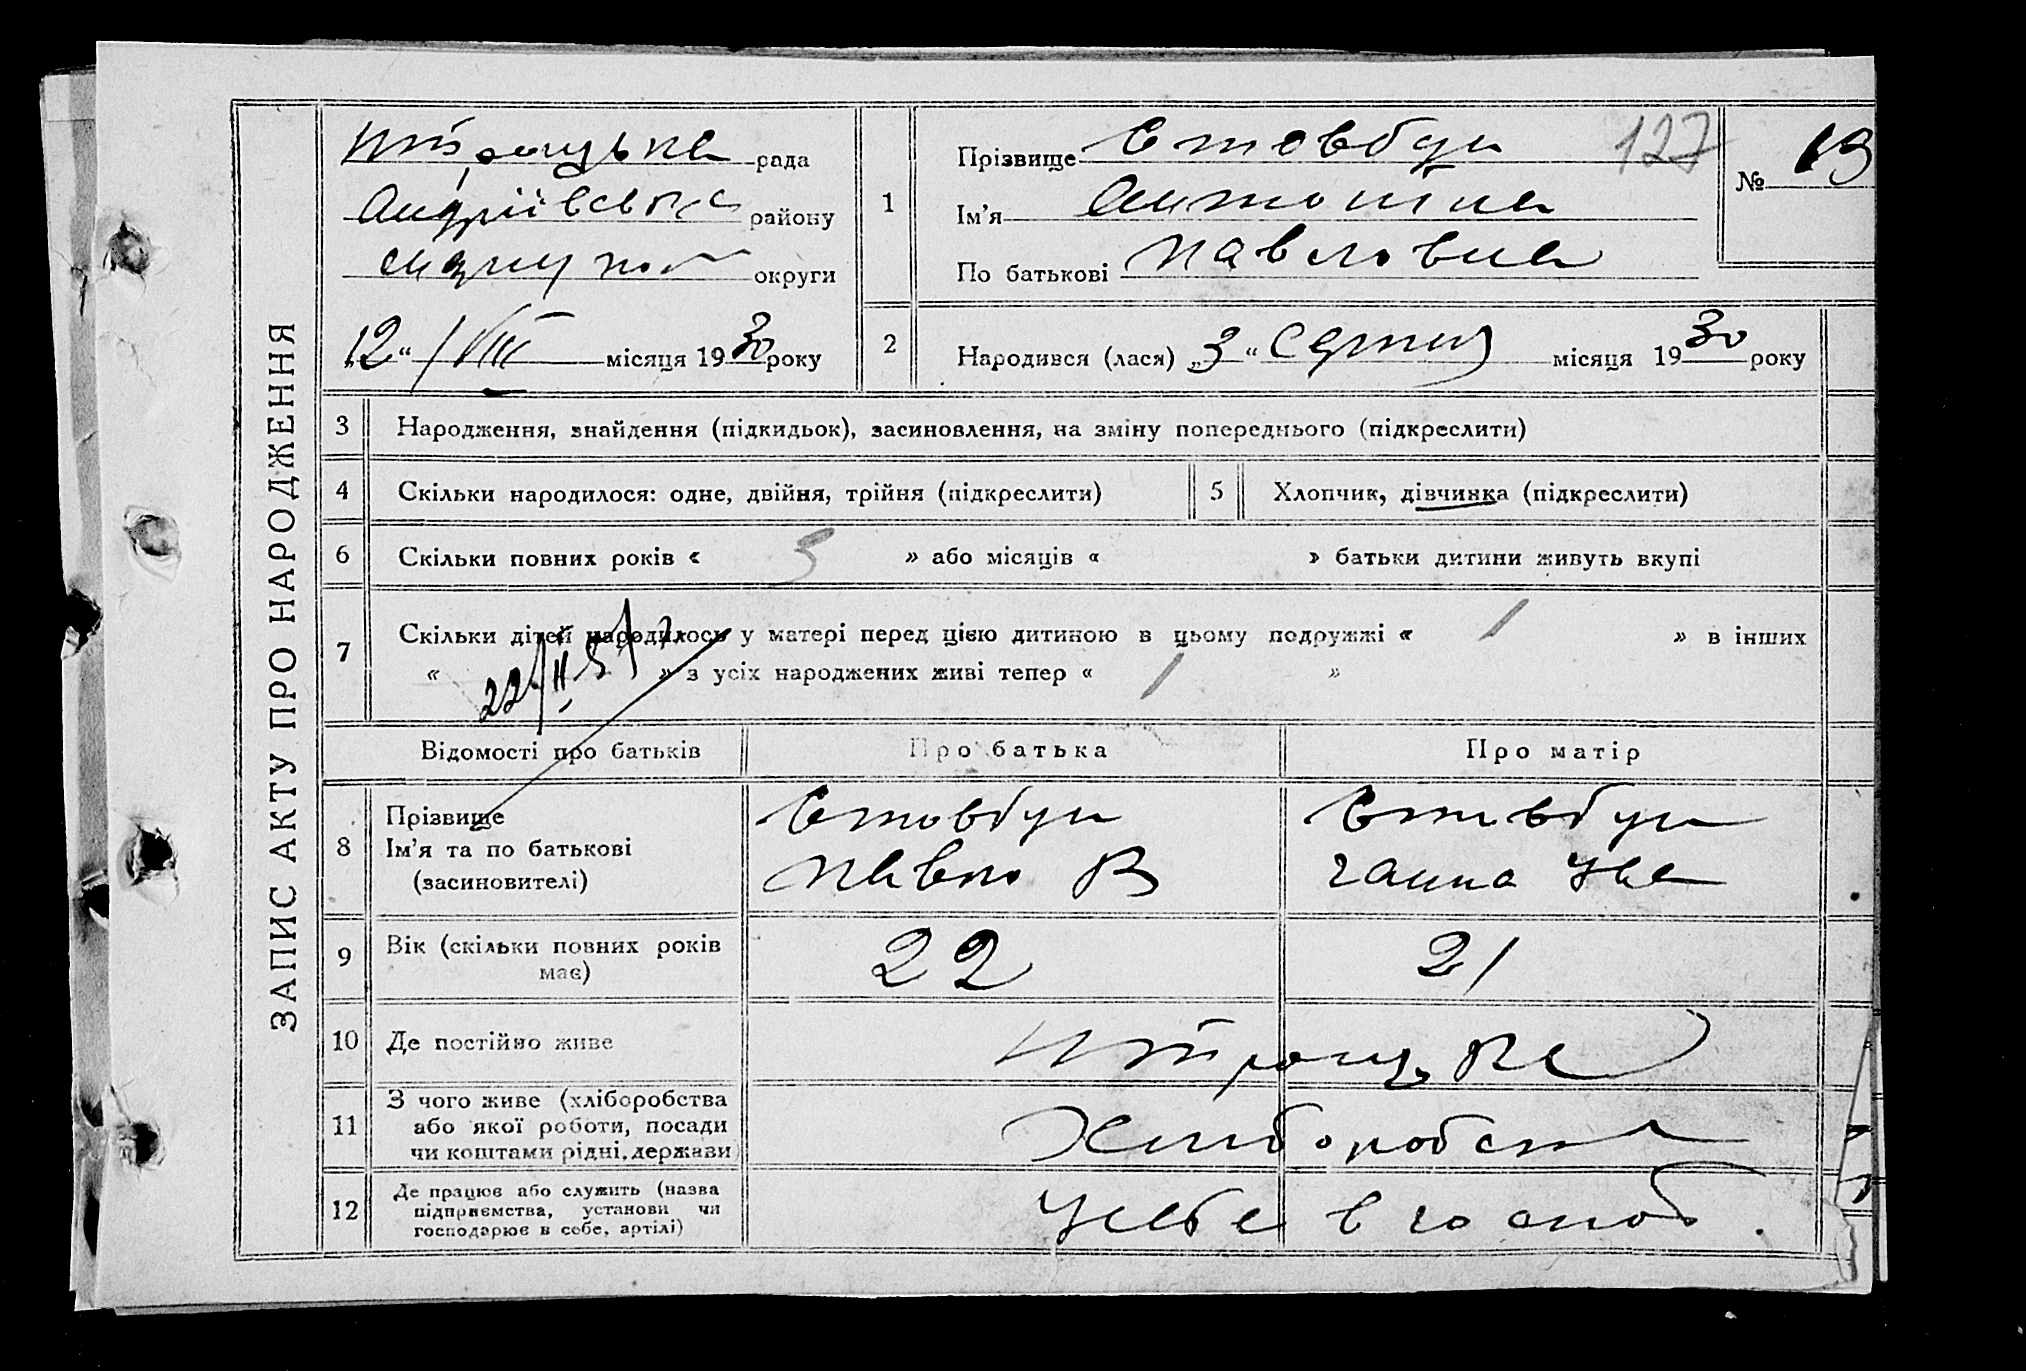 ЗАПИС АКТУ ПРО НАРОДЖЕННЯ
рада
Андріївська району
округи
„12“ /VIII місяця 1930 року
1
Прізвище Стовбун
127
Ім’я Антоніна
По батькові Павловна
№ 19
2
Народився (лася) „3“ Серпня місяця 1930 року
3 Народження, знайдення (підкидьок), засиновлення, на зміну попереднього (підкреслити)
4 Скільки народилося: одне, двійня, трійня (підкреслити)
5 Хлопчик, дівчинка (підкреслити)
6 Скільки повних років « » або місяців « » батьки дитини живуть вкупі
7 Скільки дітей народилось у матері перед цією дитиною в цьому подружжі « 1 » в інших
« » з усіх народжених живі тепер « 1 »
Відомості про батьків
Про батька
Про матір
8 Прізвище
Ім’я та по батькові
(засиновителі)
Стовбун
Павло В
Стовбун
Ганна Ив
9 Вік (скільки повних років
має)
22
21
10 Де постійно живе
11 З чого живе (хліборобства
або якої роботи, посади
чи коштами рідні, держави
Хліборобства
12 Де працює або служить (назва
підприємства, установи чи
господарює в себе, артілі)